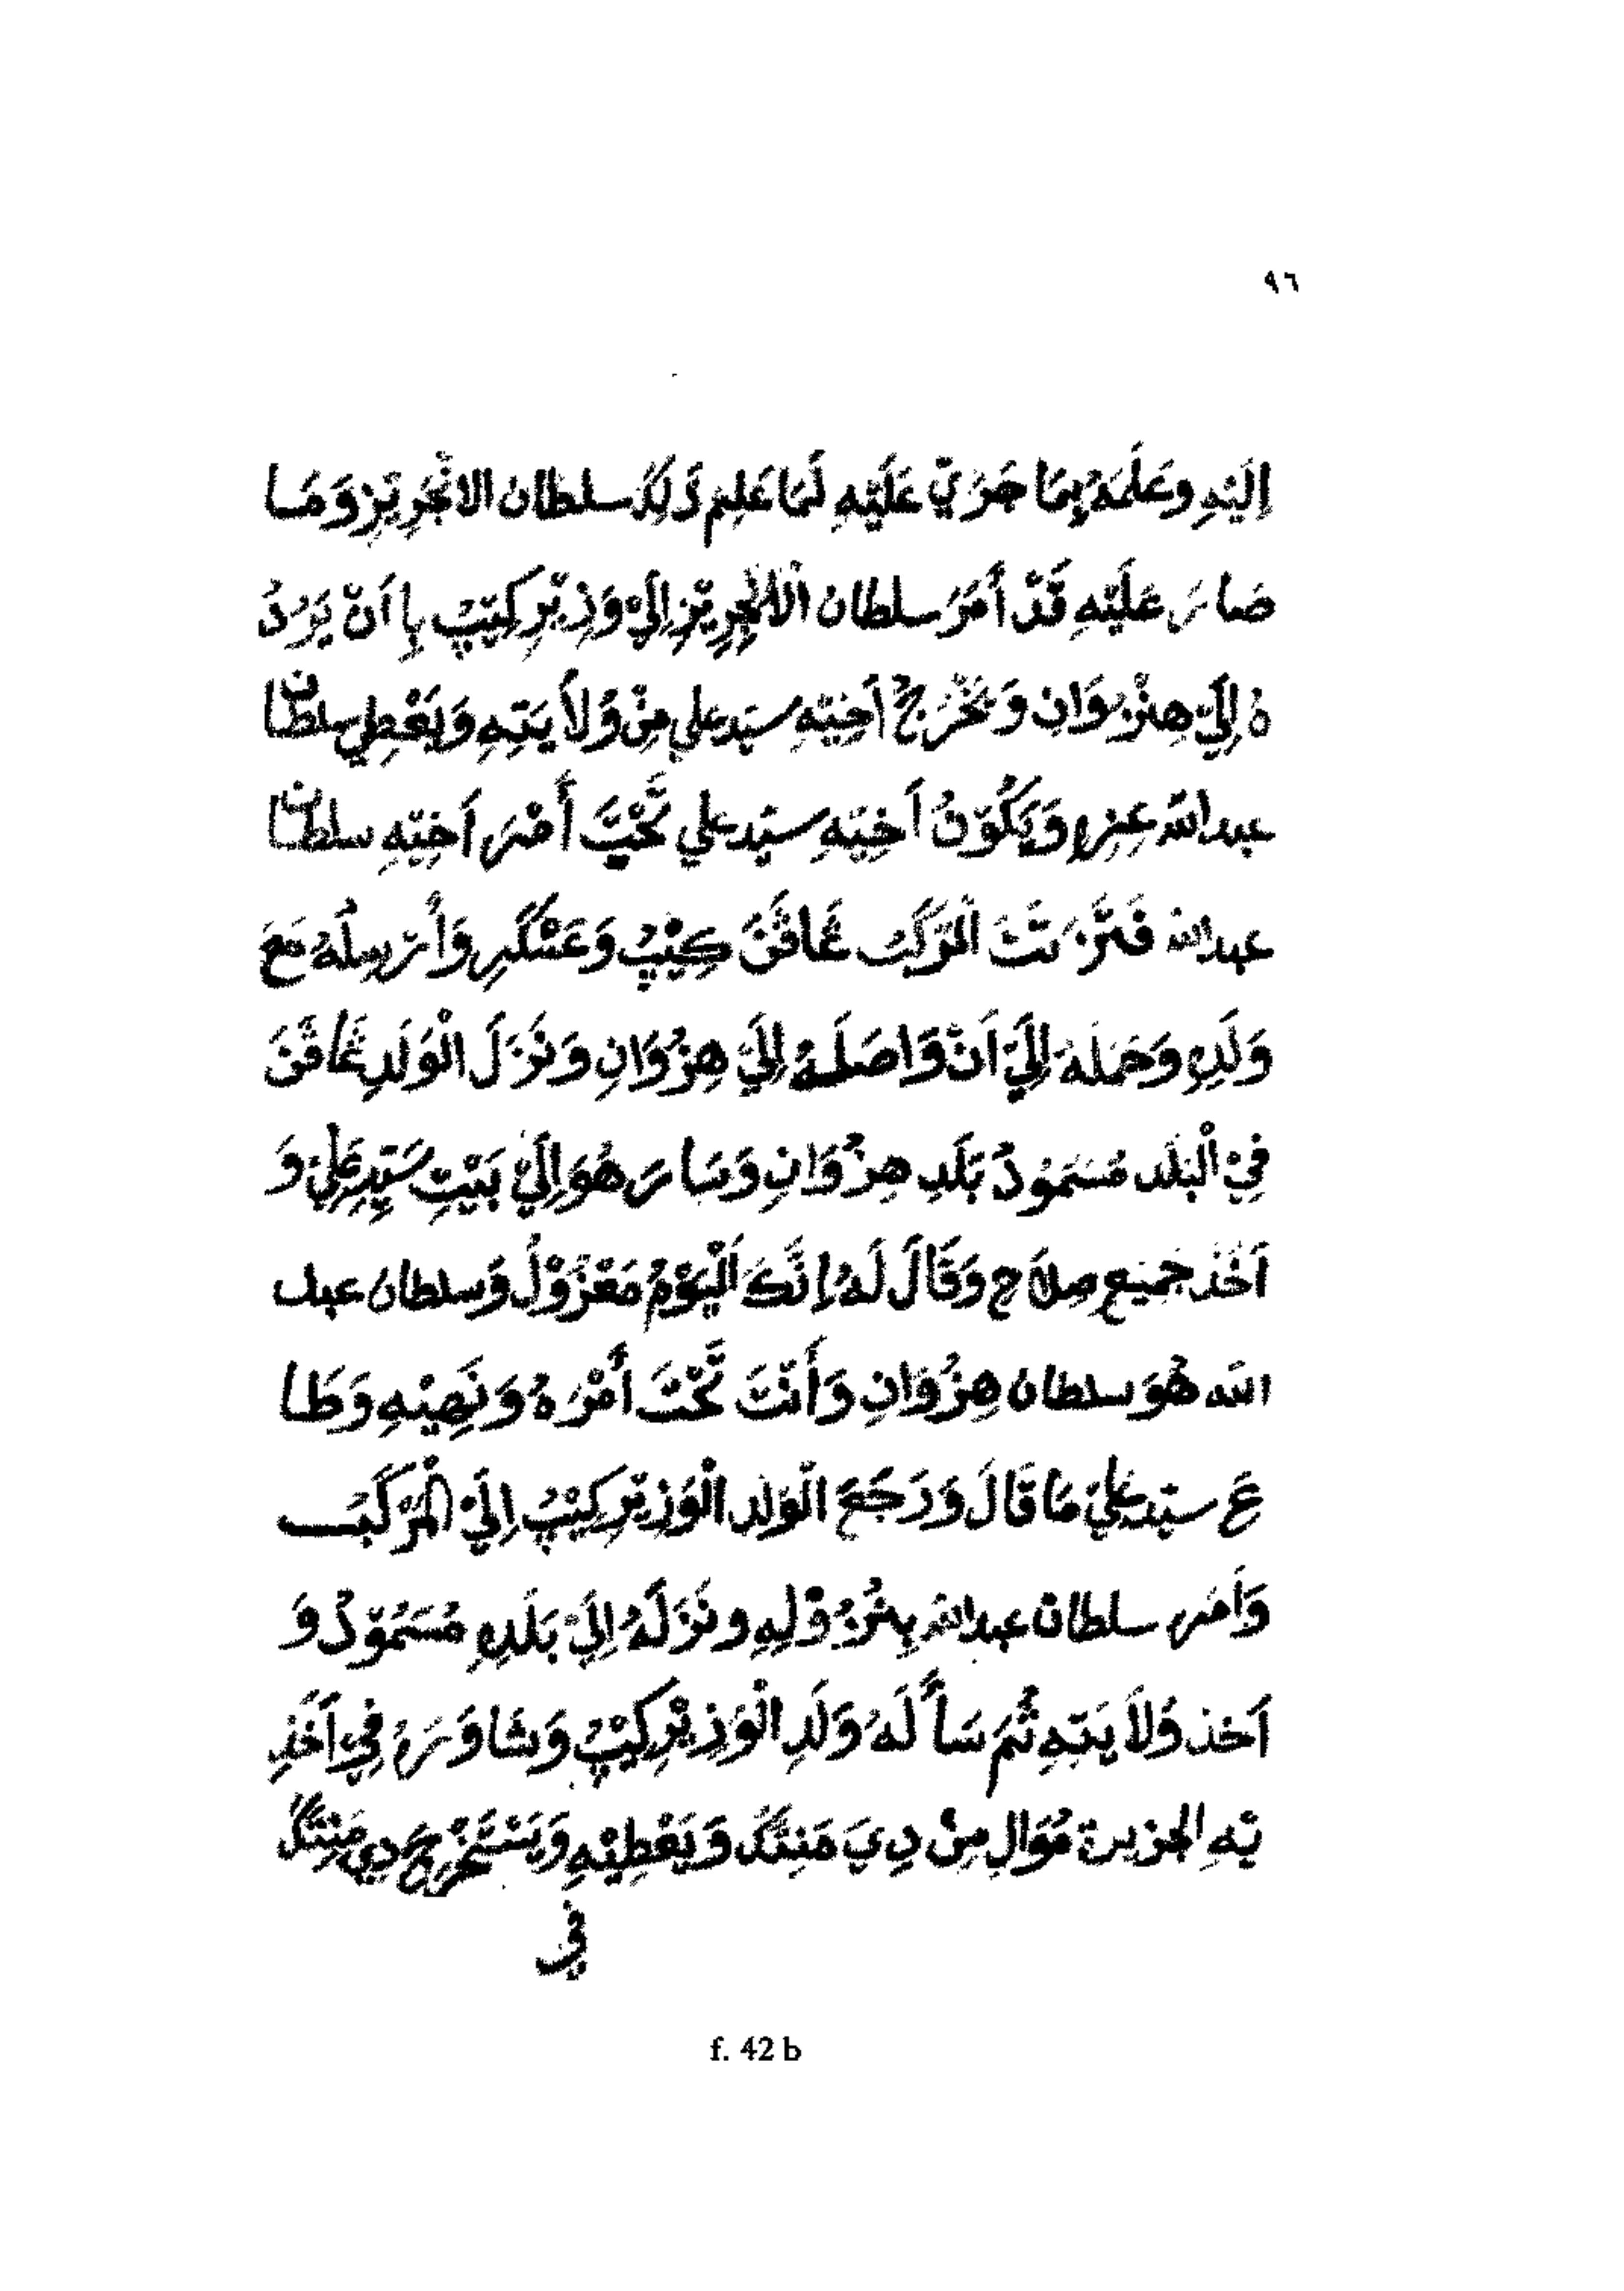 ٩٦
إِلَيْهِ وعَلَمَهُ بِمَا جَرَيّ عَلَيْهِ لَمَا عَلِم ذَلِكَ سلطان الانْجَرِيْزِ وَمَا
صَارَ عَلَيْهِ قَدْ أَمَرَ سلطان الانْجَرِيْزِ إِلَيْ وَزِيْرِ كِيَپْ بِاَنْ يَرُدُ
هُ إِلَيْ هِنْزُوَانِ وَيَخْرُجُ أَخِيْهِ سيّد علي مِنْ وَلاَيَتِهِ وَيَعْطِي سلطان
عبد الله عِزِهِ وَيَكُوْنُ أَخِيْهِ سيّد علي تَحْتَ أَمْرِ أَخِيْهِ سلطان
عبد الله فَتَرَتَتْ الْمَرْكَبُ غَافْنَ كِيْپْ وَعَسْكَرِ وَأَرْسِلُهُ مَعَ
وَلَدِهِ وَحَمَلَهُ إِلَيْ اَنْ وَاصَلَهُ إِلَيْ هِنْزُوَانِ وَنَزَلَ الْوَلَدِ غَافْنَ
فِيْ الْبَلَد مُسَمُوْدُ بَلَدِ هِنْزُوَانِ وَسَارَ هُوَ إِلَيْ بَيْتِ سَيّدِ عَلِيْ وَ
اَخَذ جَمِيعِ صِلاَحِ وَقَالَ لَهُ إِنَّكَ الْيَوْمُ مَعْزُوْلُ وَسلطان عبد
الله هُوَ سلطان هِنْزُوَانِ وَأَنْتَ تَحْتَ أَمْرَهُ وَنَهِيْهِ وَطَا
عَ سيّد عَلِيْ مَا قَالَ وَرَجَعَ الْوَلَد الْوَزِيْرِ كِيْپْ إِلَيْ الْمَرْكَبُ
وَاَمَر سلطان عبد الله بِنْزُوْلِهِ ونَزَلَهُ إِلَيْ بَلَدِهِ مُسَمُوْدُ وَ
اَخذ وَلاَيَتِهِ ثُمَ سَأَلَهُ وَلَدِ الْوَزِيْرِ كِيْپْ وَشَاوَرَهُ فِيْ اَخَذِ
يَّهِ الجزيرة مُوَالِ مِنْ دِيَ مَنِنْگَ وَيَعْطِيْهِ وَيَسْتَخْرِجُ دِي مَنِنْگَ
في
f. 42 b